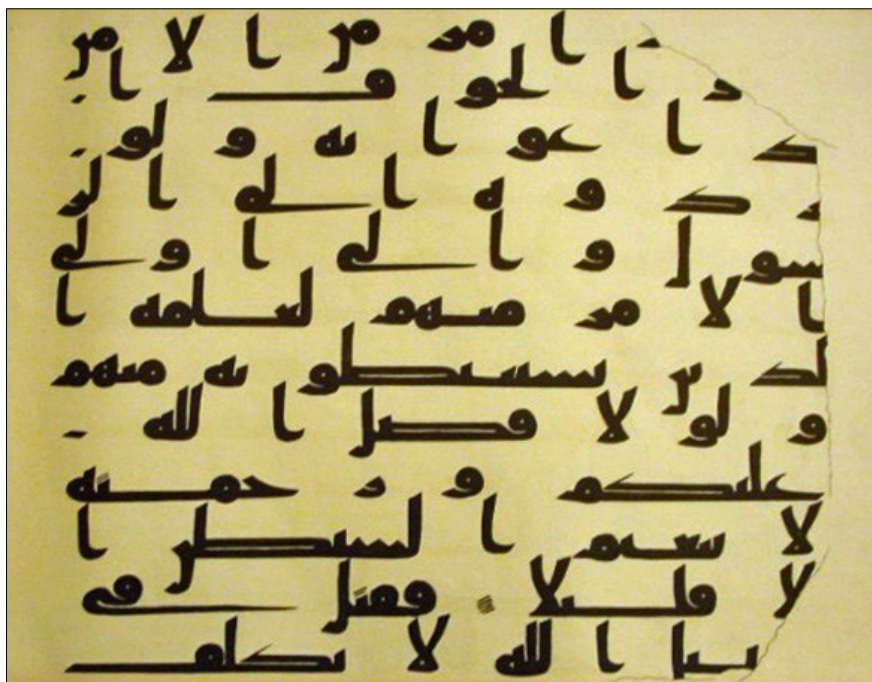 امر من الامن
او الخوف ا
ذاعوا به ولو
ردوه الى الر
سول والى اولى
الامر منهم لعلمه ا
لذين يستنبطونه منهم
ولولا فضل الله
عليكم ورحمته
لاتبعتم الشيطن ا
لا قليلا فقتل في
سبيل الله لا تكلف